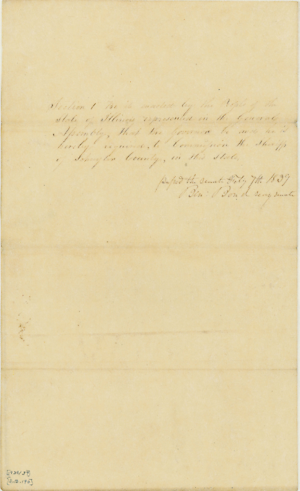 Section 1 Be it enacted by the People of the
State of Illinois represented in the General
Assembly, that the Governor be and is
hereby required to Commission the Sheriff
of County, in this state
passed the Senate Feby 7th 1839
Benj Bond Secy Senate